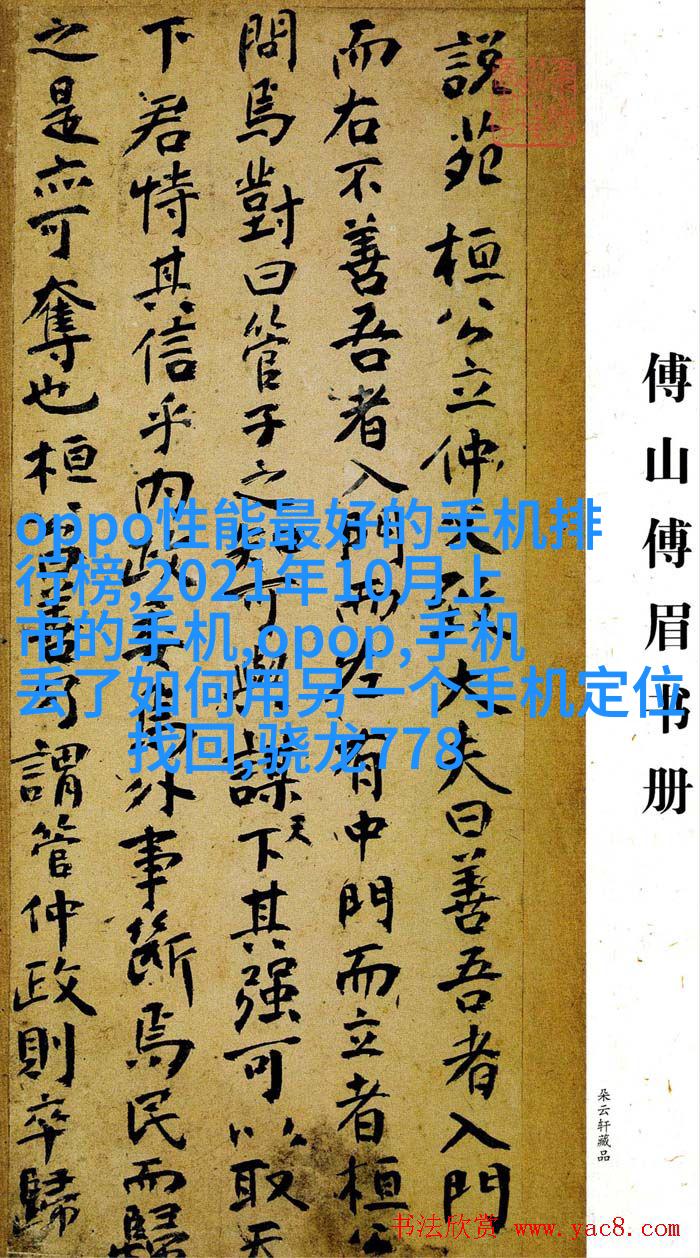 說苑 桓公立仲父致大夫曰善吾者入門
而右不善吾者入門而左有中門而立者桓公
問焉對曰管子之知可與謀天下其强可以取天
下君恃其信乎内政委焉外事斷焉民而歸
之是亦可奪也桓公曰善乃謂管仲政則卒歸
傅山傅眉书册
朵云轩藏品
oppo性能最好的手机排
行榜,2021年10月上
市的手机,opop,手机
丢了如何用另一个手机定位
找回,骁龙778
书法欣赏 www.yac8.com